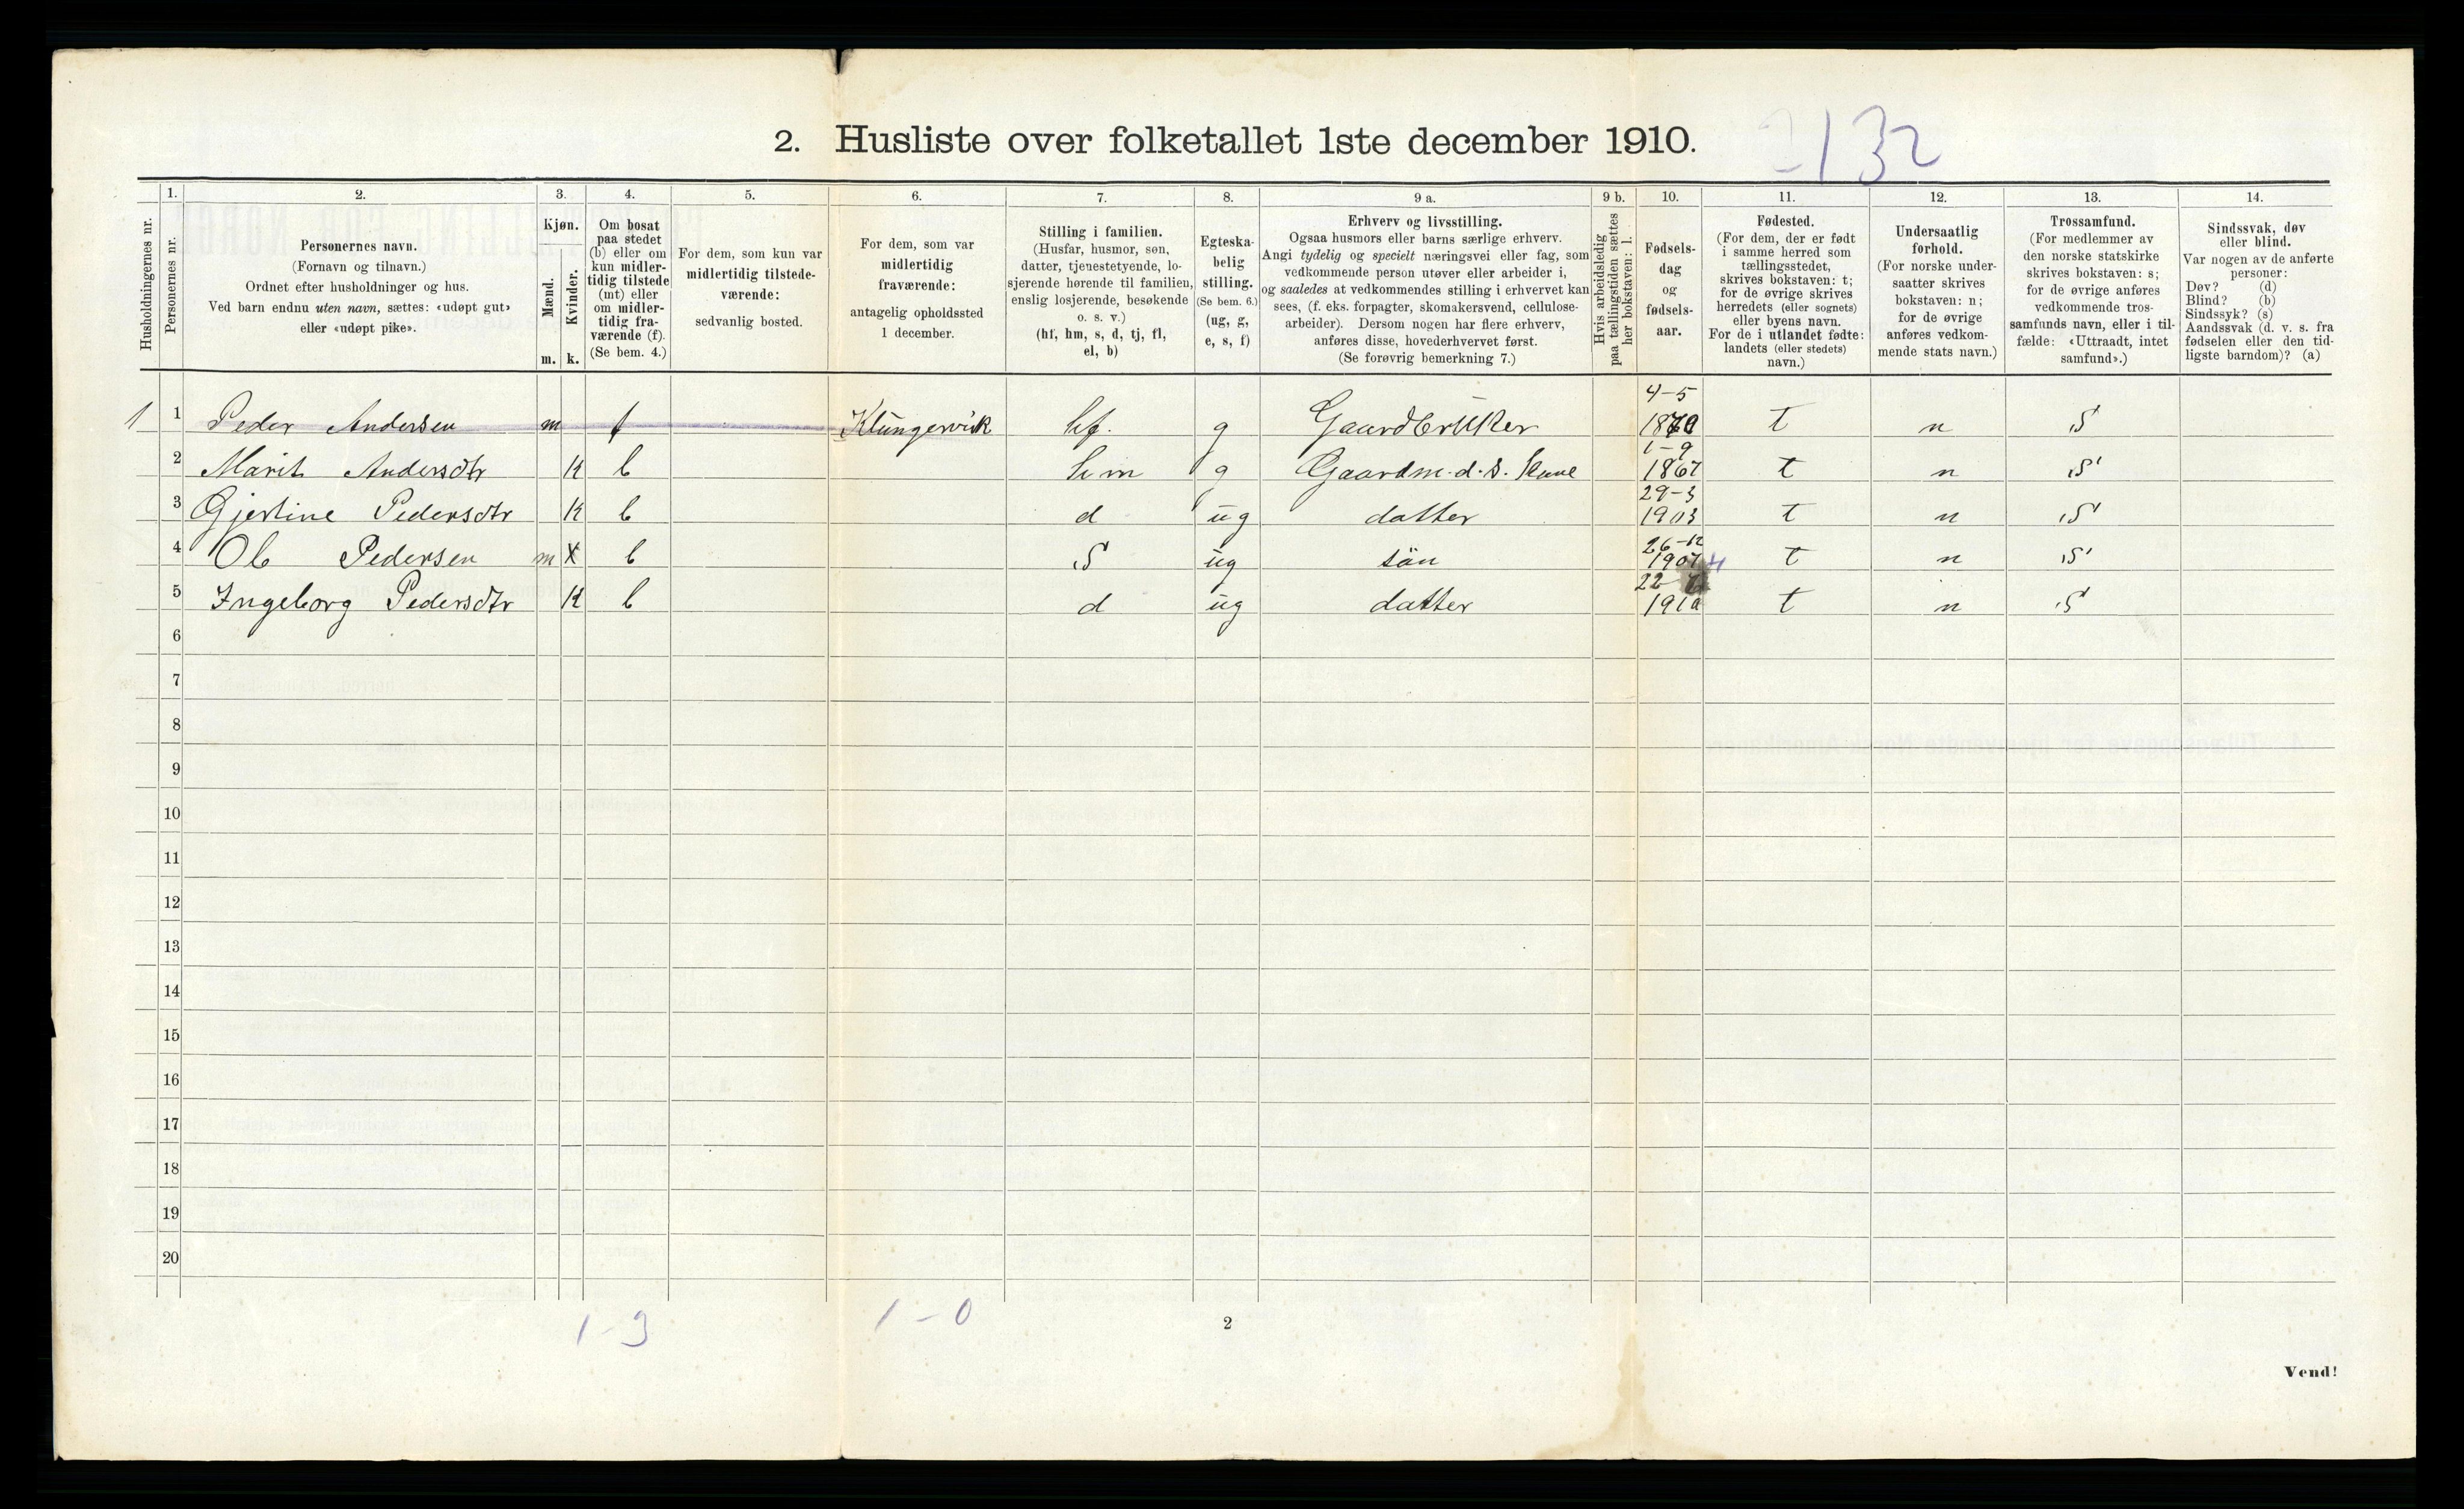 2. Husliste over folketallet 1ste december 1910.
2132
Husholdningernes nr.
1.
Personernes nr.
2.
Personernes navn.
(Fornavn og tilnavn.)
Ordnet efter husholdninger og hus.
Ved barn endnu uten navn, sættes: «udøpt gut»
eller «udøpt pike».
3.
Kjøn.
Mænd.
m.
Kvinder.
k.
4.
Om bosat
paa stedet
(b) eller om
kun midler-
tidig tilstede
(mt) eller
om midler-
tidig fra-
værende (f).
(Se bem. 4.)
5.
For dem, som kun var
midlertidig tilstede-
værende:
sedvanlig bosted.
6.
For dem, som var
midlertidig
fraværende:
antagelig opholdssted
1 december.
7.
Stilling i familien.
(Husfar, husmor, søn,
datter, tjenestetyende, lo-
sjerende hørende til familien,
enslig losjerende, besøkende
o. s. v.)
(hf, hm, s, d, tj, fl,
el, b)
8.
Egteska-
belig
stilling.
(Se bem. 6.)
(ug, g,
e, s, f)
9 a.
Erhverv og livsstilling.
Ogsaa husmors eller barns særlige erhverv.
Angi tydelig og specielt næringsvei eller fag, som
vedkommende person utøver eller arbeider i,
og saaledes at vedkommendes stilling i erhvervet kan
sees, (f. eks. forpagter, skomakersvend, cellulose-
arbeider). Dersom nogen har flere erhverv,
anføres disse, hovederhvervet først.
(Se forøvrig bemerkning 7.)
9 b.
Hvis arbeidsledig
paa tællingstiden sættes
her bokstaven: l.
10.
Fødsels-
dag
og
fødsels-
aar.
11.
Fødested.
(For dem, der er født
i samme herred som
tællingsstedet,
skrives bokstaven: t;
for de øvrige skrives
herredets (eller sognets)
eller byens navn.
For de i utlandet fødte:
landets (eller stedets)
navn.)
12.
Undersaatlig
forhold.
(For norske under-
saatter skrives
bokstaven: n;
for de øvrige
anføres vedkom-
mende stats navn.)
13.
Trossamfund.
(For medlemmer av
den norske statskirke
skrives bokstaven: s;
for de øvrige anføres
vedkommende tros-
samfunds navn, eller i til-
fælde: «Uttraadt, intet
samfund».)
14.
Sindssvak, døv
eller blind.
Var nogen av de anførte
personer:
Døv? (d)
Blind? (b)
Sindssyk? (s)
Aandssvak (d. v. s. fra
fødselen eller den tid-
ligste barndom)? (a)
1 1 Peder Andersen m f Klungervik hf. g Gaardbruker 4-5 1870 t n S
2 Marit Andersdtr K b hm g Gaardm.d.s. Kone 1-9 1867 t n S
3 Gjertine Pedersdtr K b d ug datter 29-3 1903 t n S
4 Ole Pedersen m b S ug sön 26-12 1907 t n S
5 Ingeborg Pedersdtr K b d ug datter 22- 1910 t n S
6
7
8
9
10
11
12
13
14
15
16
17
18
19
20
1-3 1-0
2
Vend!